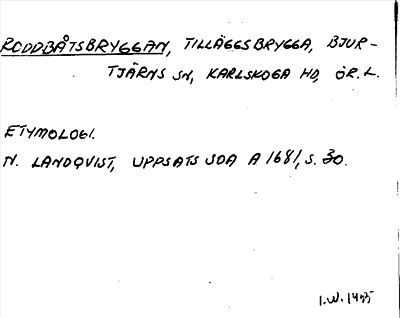 RODDBÅTSBRYGGAN, TILLÄGGSBRYGGA, BJUR-
TJÄRNS SN, KARLSKOGA HD, ÖR. L.
ETYMOLOGI.
N. LANDQVIST, UPPSATS SOA A 1681, S. 30.
I.W. 1975